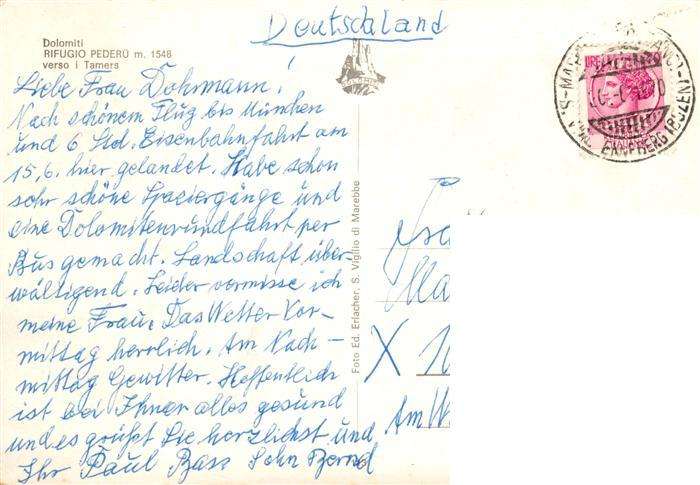 Deutschaland
Dolomiti
RIFUGIO PEDERÜ m. 1548
verso i Tamers
Liebe Frau Dohrmann!
Nach schönem Flug bis München
und 6 Std. Eisenbahnfahrt am
15.6. hier gelandet. Habe schon
sehr schöne Spaziergänge und
eine Dolomitenrundfahrt per
Bus gemacht. Landschaft über-
wältigend. Leider vermisse ich
meine Frau. Das Wetter Vor-
mittag herrlich. Am Nach-
mittag Gewitter. Hoffentlich
ist bei Ihnen alles gesund
und es grüßt Sie herzlichst und
Ihr Paul Bass Sohn Bernd
Foto Ed. Erlacher, S. Vigilio di Marebbe
X
Am W